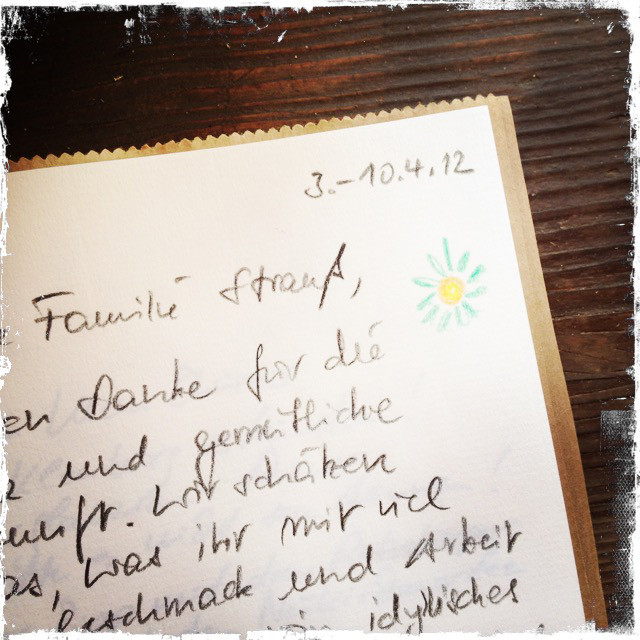 3.-10.4.12
Familie Strauß,
en Danke für die
und gemütliche
unft. Wir schätzen
as, was ihr mit viel
Geschmack und Arbeit
idyllisches